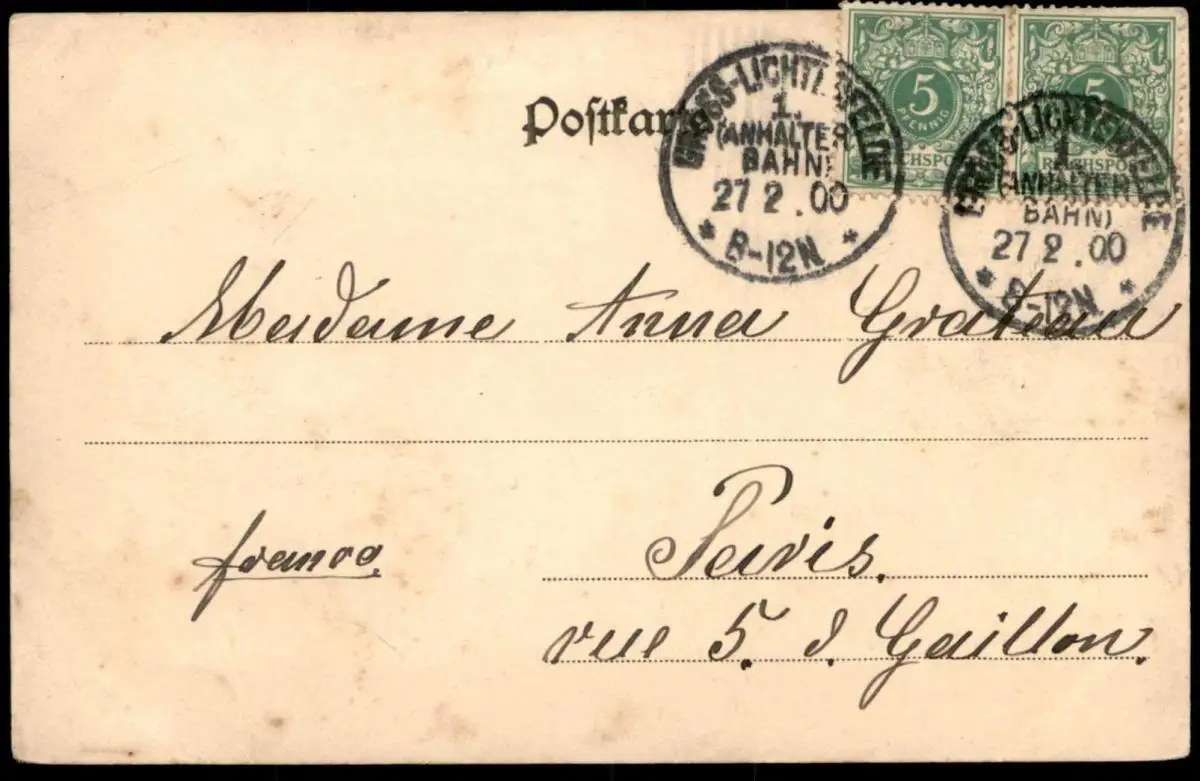 Postkarte
5
PFENNIG
REICHSPOST
5
REICHSPOST
GROSS-LICHTERFELDE
1.
(ANHALTER
BAHN)
27 2. 00
* 8-12N *
GROSS-LICHTERFELDE
1
(ANHALTER
BAHN)
27 2. 00
* 8-12N *
Madame Anna
franco
Paris.
rue 5. d. Gaillon.